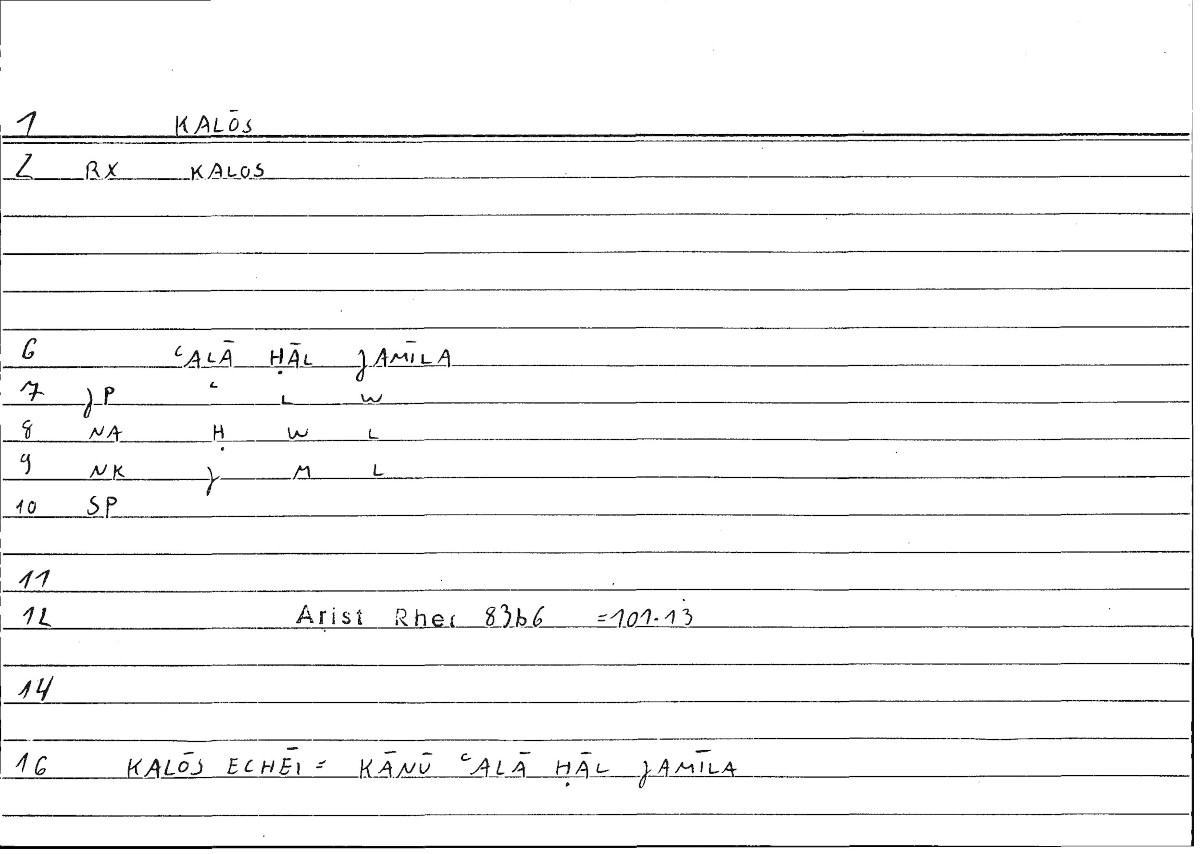 1 KALŌS
2 RX KALOS
6 ʿALĀ ḤĀL JAMĪLA
7 JP ʿ L W
8 NA Ḥ W L
9 NK J M L
10 SP
11
12 Arist Rhet 83b6 =101.13
14
16 KALŌS ECHĒI = KĀNŪ ʿALĀ ḤĀL JAMĪLA